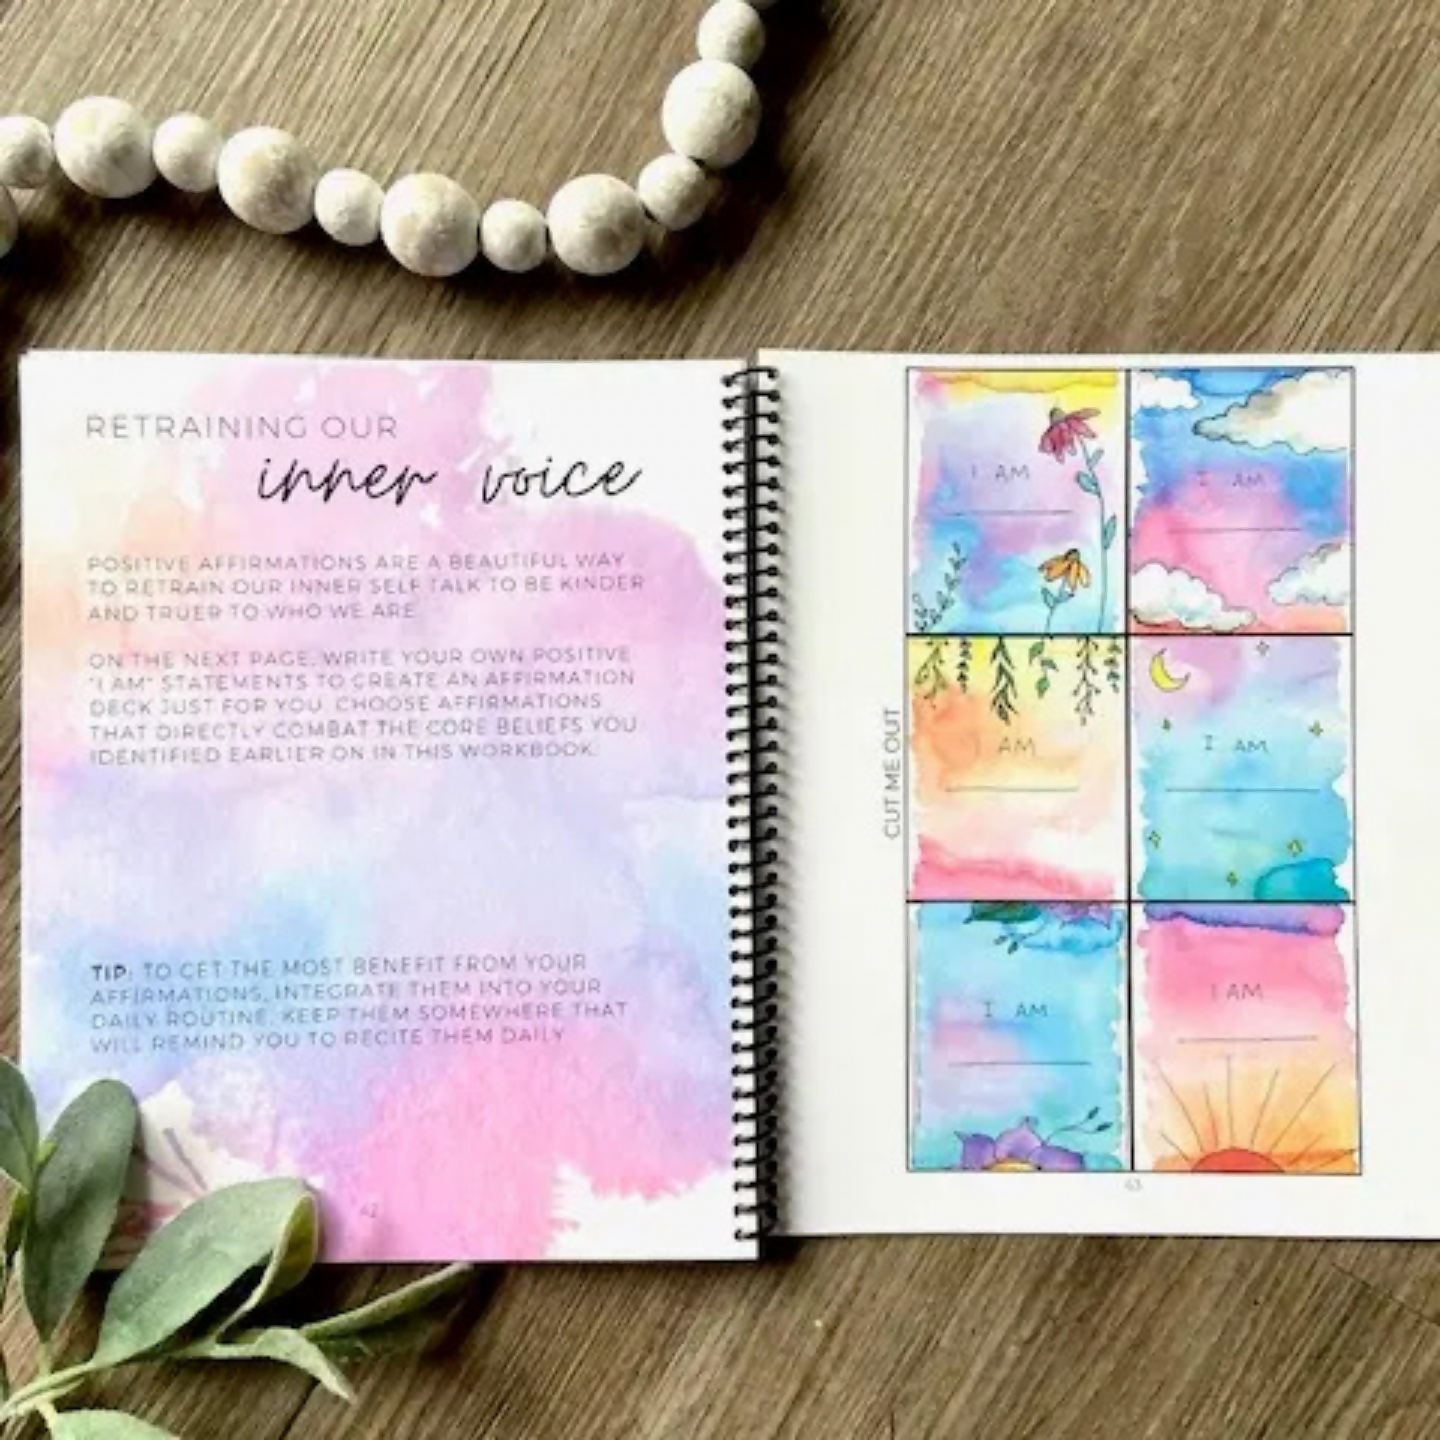 RETRAINING OUR
inner voice
POSITIVE AFFIRMATIONS ARE A BEAUTIFUL WAY
TO RETRAIN OUR INNER SELF TALK TO BE KINDER
AND TRUER TO WHO WE ARE.
ON THE NEXT PAGE, WRITE YOUR OWN POSITIVE
"I AM" STATEMENTS TO CREATE AN AFFIRMATION
DECK JUST FOR YOU. CHOOSE AFFIRMATIONS
THAT DIRECTLY COMBAT THE CORE BELIEFS YOU
IDENTIFIED EARLIER ON IN THIS WORKBOOK.
TIP: TO GET THE MOST BENEFIT FROM YOUR
AFFIRMATIONS, INTEGRATE THEM INTO YOUR
DAILY ROUTINE. KEEP THEM SOMEWHERE THAT
WILL REMIND YOU TO RECITE THEM DAILY
42
CUT ME OUT
I AM
I AM
I AM
I AM
I AM
I AM
43